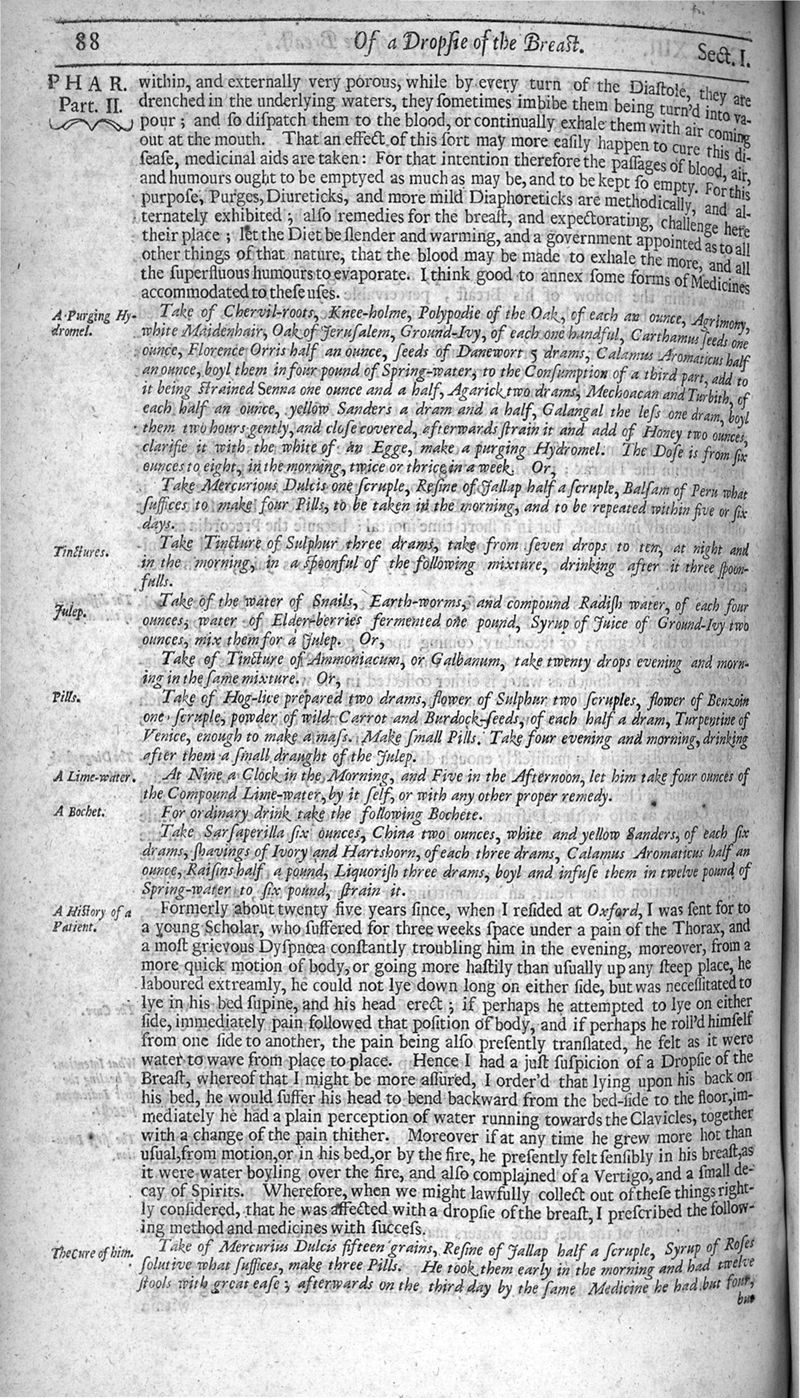 88 Of a Dropſie of the Breaſt. Sect. I.
PHAR. within, and externally very porous, while by every turn of the Diaſtole, they are
Part. II. drenched in the underlying waters, they ſometimes imbibe them being turn'd into va-
pour; and ſo diſpatch them to the blood, or continually exhale them with air coming
out at the mouth. That an effect of this ſort may more eaſily happen to cure this di-
ſeaſe, medicinal aids are taken: For that intention therefore the paſſages of blood, air,
and humours ought to be emptyed as much as may be, and to be kept ſo empty. For this
purpoſe, Purges, Diureticks, and more mild Diaphoreticks are methodically, and al-
ternately exhibited; alſo remedies for the breaſt, and expectorating, challenge here
their place; let the Diet be ſlender and warming, and a government appointed as to all
other things of that nature, that the blood may be made to exhale the more, and all
the ſuperfluous humours to evaporate. I think good to annex ſome forms of Medicines
accommodated to theſe uſes.
A Purging Hy- Take of Chervil-roots, Knee-holme, Polypodie of the Oak, of each an ounce, Agrimony,
dromel. white Maidenhair, Oak of Jeruſalem, Ground-Ivy, of each one handful, Carthamus ſeeds one
ounce, Florence Orris half an ounce, ſeeds of Danewort 5 drams, Calamus Aromaticus half
an ounce, boyl them in four pound of Spring-water, to the Conſumption of a third part, add to
it being ſtrained Senna one ounce and a half, Agarick two drams, Mechoacan and Turbith, of
each half an ounce, yellow Sanders a dram and a half, Galangal the leſs one dram, boyl
them two hours gently, and cloſe covered, afterwards ſtrain it and add of Honey two ounces,
clarifie it with the white of an Egge, make a purging Hydromel. The Doſe is from ſix
ounces to eight, in the morning, twice or thrice in a week. Or,
Take Mercurious Dulcis one ſcruple, Reſine of Jallap half a ſcruple, Balſam of Peru what
ſuffices to make four Pills, to be taken in the morning, and to be repeated within five or ſix
days.
Tinctures. Take Tincture of Sulphur three drams, take from ſeven drops to ten, at night and
in the morning, in a ſpoonful of the following mixture, drinking after it three ſpoon-
fulls.
Julep. Take of the water of Snails, Earth-worms, and compound Radiſh water, of each four
ounces, water of Elder-berries fermented one pound, Syrup of Juice of Ground-Ivy two
ounces, mix them for a Julep. Or,
Take of Tincture of Ammoniacum, or Galbanum, take twenty drops evening and morn-
ing in the ſame mixture. Or,
Pills. Take of Hog-lice prepared two drams, flower of Sulphur two ſcruples, flower of Benzoin
one ſcruple, powder of wild Carrot and Burdock-ſeeds, of each half a dram, Turpentine of
Venice, enough to make a maſs. Make ſmall Pills. Take four evening and morning, drinking
after them a ſmall draught of the Julep.
A Lime-water. At Nine a Clock in the Morning, and Five in the Afternoon, let him take four ounces of
the Compound Lime-water, by it ſelf, or with any other proper remedy.
A Bochet. For ordinary drink take the following Bochete.
Take Sarſaperilla ſix ounces, China two ounces, white and yellow Sanders, of each ſix
drams, ſhavings of Ivory and Hartshorn, of each three drams, Calamus Aromaticus half an
ounce, Raiſins half a pound, Liquoriſh three drams, boyl and infuſe them in twelve pound of
Spring-water to ſix pound, ſtrain it.
A Hiſtory of a Formerly about twenty five years ſince, when I reſided at Oxford, I was ſent for to
Patient. a young Scholar, who ſuffered for three weeks ſpace under a pain of the Thorax, and
a moſt grievous Dyſpnœa conſtantly troubling him in the evening, moreover, from a
more quick motion of body, or going more haſtily than uſually up any ſteep place, he
laboured extreamly, he could not lye down long on either ſide, but was neceſſitated to
lye in his bed ſupine, and his head erect; if perhaps he attempted to lye on either
ſide, immediately pain followed that poſition of body, and if perhaps he roll'd himſelf
from one ſide to another, the pain being alſo preſently tranſlated, he felt as it were
water to wave from place to place. Hence I had a juſt ſuſpicion of a Dropſie of the
Breaſt, whereof that I might be more aſſured, I order'd that lying upon his back on
his bed, he would ſuffer his head to bend backward from the bed-ſide to the floor, im-
mediately he had a plain perception of water running towards the Clavicles, together
with a change of the pain thither. Moreover if at any time he grew more hot than
uſual, from motion, or in his bed, or by the fire, he preſently felt ſenſibly in his breaſt, as
it were water boyling over the fire, and alſo complained of a Vertigo, and a ſmall de-
cay of Spirits. Wherefore, when we might lawfully collect out of theſe things right-
ly conſidered, that he was affected with a dropſie of the breaſt, I preſcribed the follow-
ing method and medicines with ſucceſs.
The Cure of him. Take of Mercurius Dulcis fifteen grains, Reſine of Jallap half a ſcruple, Syrup of Roſes
ſolutive what ſuffices, make three Pills. He took them early in the morning and had twelve
ſtools with great eaſe; afterwards on the third day by the ſame Medicine he had but four,
but